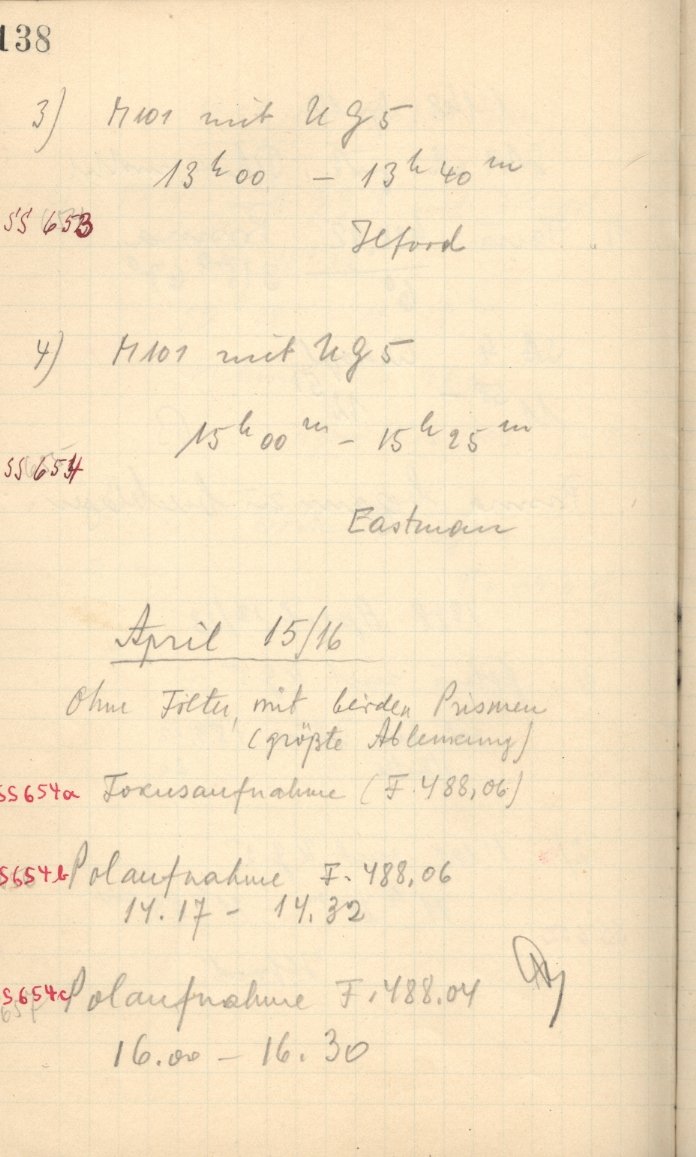 138
3) M101 mit UG5
13h 00 – 13h 40m
SS 653
Ilford
4) M101 mit UG5
15h 00m – 15h 25m
SS 654
Eastman
April 15/16
Ohne Filter, mit beiden Prismen
(größte Ablenkung)
SS654a Fokusaufnahme (F. 488,06)
S654b Polaufnahme F. 488,06
14.17 – 14.32
S654c Polaufnahme F. 488.04
16.00 – 16.30